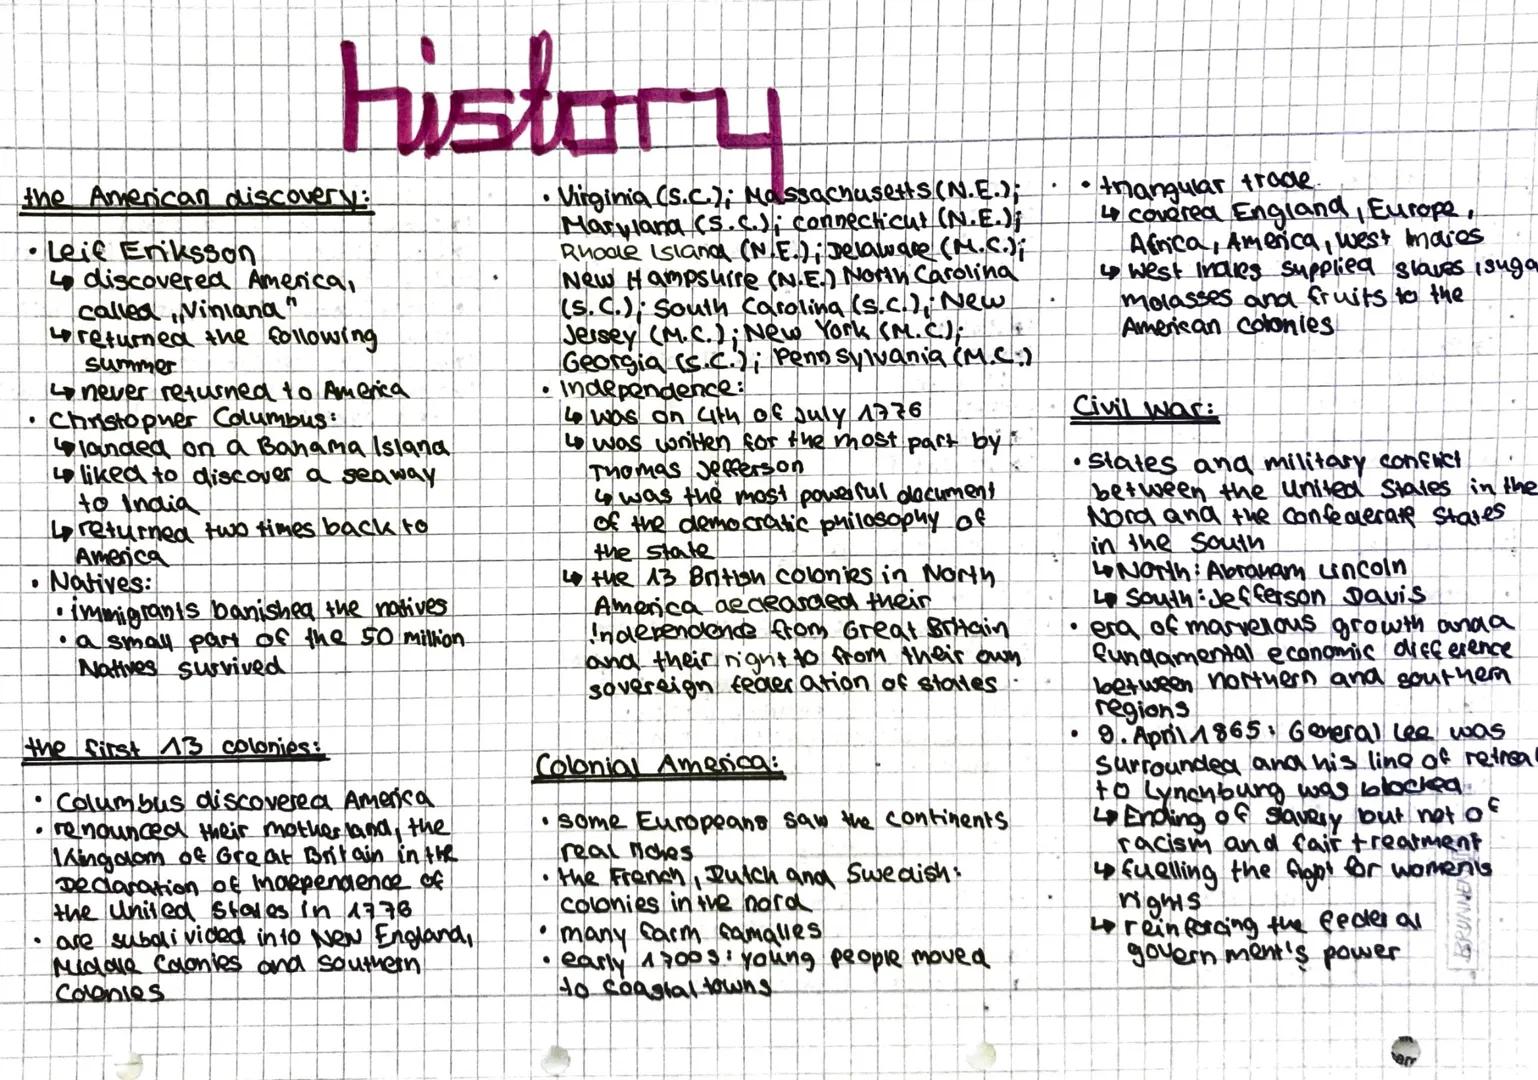 history
the American discovery:
• Leif Eriksson
↳ discovered America,
called „Vinland"
↳ returned the following
summer
↳ never returned to America
• Christopher Columbus:
↳ landed on a Bahama Island
↳ liked to discover a seaway
to India
↳ returned two times back to
America
• Natives:
• immigrants banished the natives
• a small part of the 50 million
Natives survived
the first 13 colonies:
• Columbus discovered America
• renounced their motherland, the
Kingdom of Great Britain in the
Declaration of Independence of
the United States in 1776
• are subdivided into New England,
Middle Colonies and Southern
Colonies
• Virginia (S.C.); Massachusetts (N.E.);
Maryland (S.C.); Connecticut (N.E.);
Rhode Island (N.E.); Delaware (M.C.);
New Hampshire (N.E.) North Carolina
(S.C.); South Carolina (S.C.); New
Jersey (M.C.); New York (M.C);
Georgia (S.C.); Pennsylvania (M.C.)
• Independence:
↳ was on 4th of July 1776
↳ was written for the most part by
Thomas Jefferson
↳ was the most powerful document
of the democratic philosophy of
the state
↳ the 13 British colonies in North
America decearded their
independence from Great Britain
and their right to from their own
sovereign federation of states
Colonial America:
• some Europeans saw the continents
real riches
• the French, Dutch and Swedish:
colonies in the nord
• many farm famalies
• early 1700s: young people moved
to coastal towns
• triangular trade
↳ covered England, Europe,
Africa, America, west Indies
↳ West Indies supplied slaves, suga
molasses and fruits to the
American colonies
Civil war:
• states and military conflict
between the United States in the
Nord and the Confederate States
in the South
↳ North: Abraham Lincoln
↳ South: Jefferson Davis
• era of marvelous growth and a
fundamental economic difference
between northern and southern
regions
• 9. April 1865: General Lee was
surrounded and his line of retrea
to Lynchburg was blocked
↳ Ending of slavery but not of
racism and fair treatment
↳ fuelling the fight for women's
rights
↳ reinforcing the federal
government's power
BRUNNEN